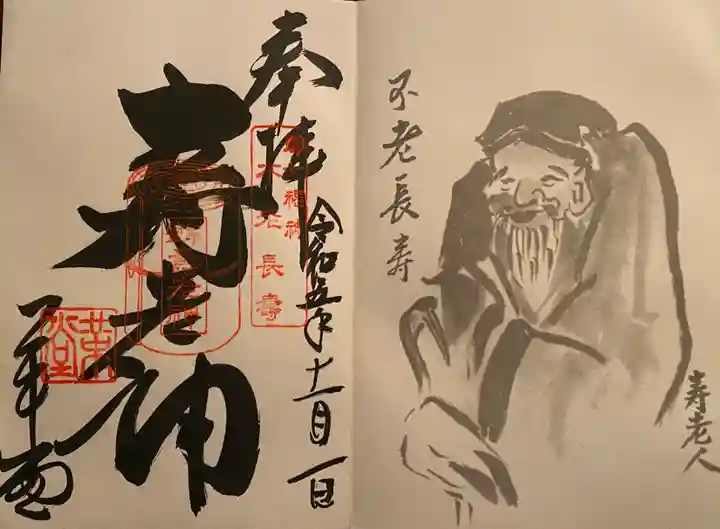 奉拝
令和五年十一月一日
寿老神
七福神
不老長壽
不老長寿
寿老人